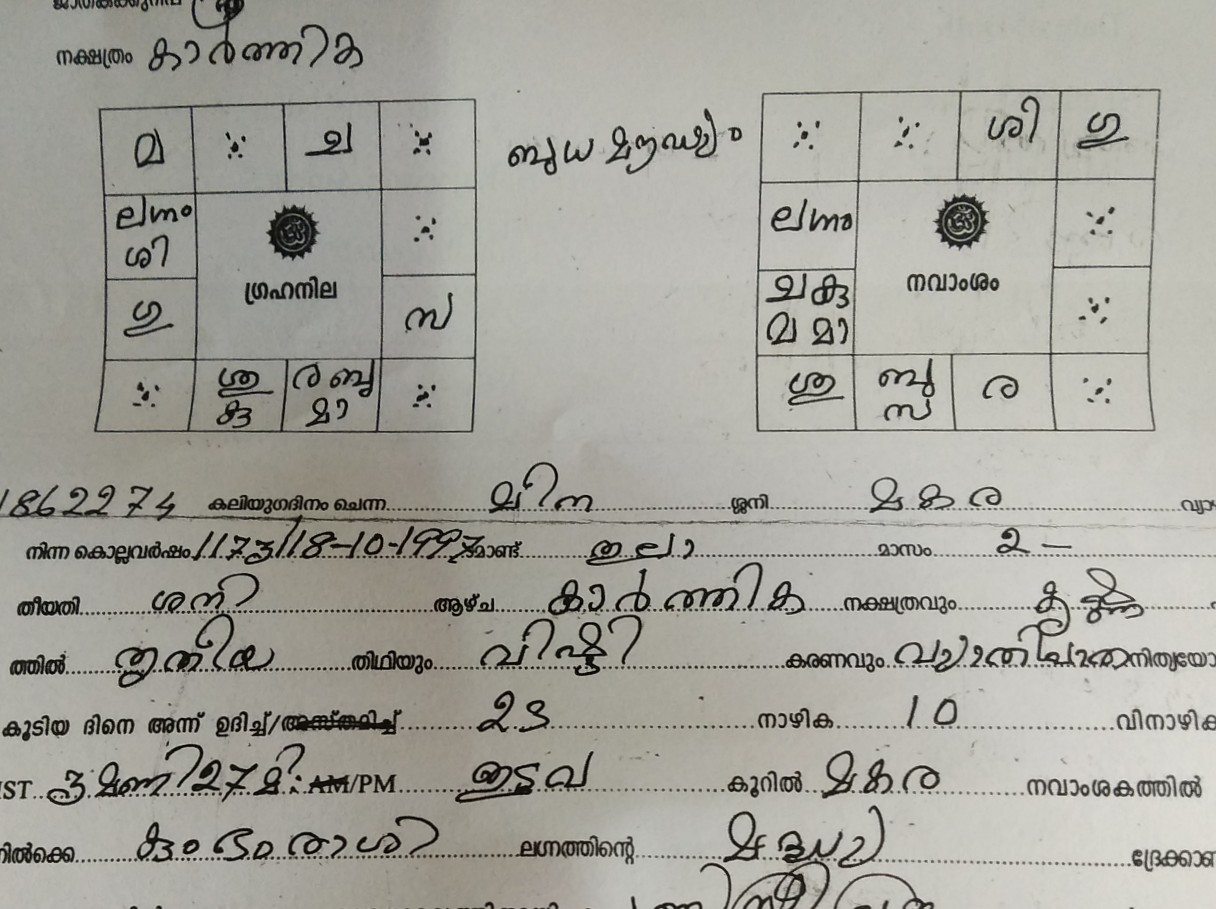 നക്ഷത്രം കാർത്തിക
മ ച
ലഗ്നം
ശി
ഗു
സ
ശു
കു
ര ബു
മാ
ഗ്രഹനില
ബുധ മൗഢ്യം
ശി ഗു
ലഗ്നം
ച കു
മ മാ
ശു
ബു
സ
ര
നവാംശം
1862274 കലിയുഗദിനം ചെന്ന മീന ശ്ശനി മകര
നിന്ന കൊല്ലവർഷം 1173/18-10-1997 മാണ്ട് തുലാ മാസം 2 -
തീയതി ശനി ആഴ്ച കാർത്തിക നക്ഷത്രവും കൃഷ്ണ
ത്തിൽ തൃതീയ തിഥിയും വിഷ്ടി കരണവും വ്യതീപാത നിത്യയോ
കൂടിയ ദിനെ അന്ന് ഉദിച്ച്/അസ്തമിച്ച് 23 നാഴിക 10 വിനാഴിക
IST 3 മണി 27 മി: AM/PM ഇടവ കൂറിൽ മകര നവാംശകത്തിൽ
നിൽക്കെ കുംഭം രാശി ലഗ്നത്തിന്റെ മദ്ധ്യ ദ്രേക്കാണ